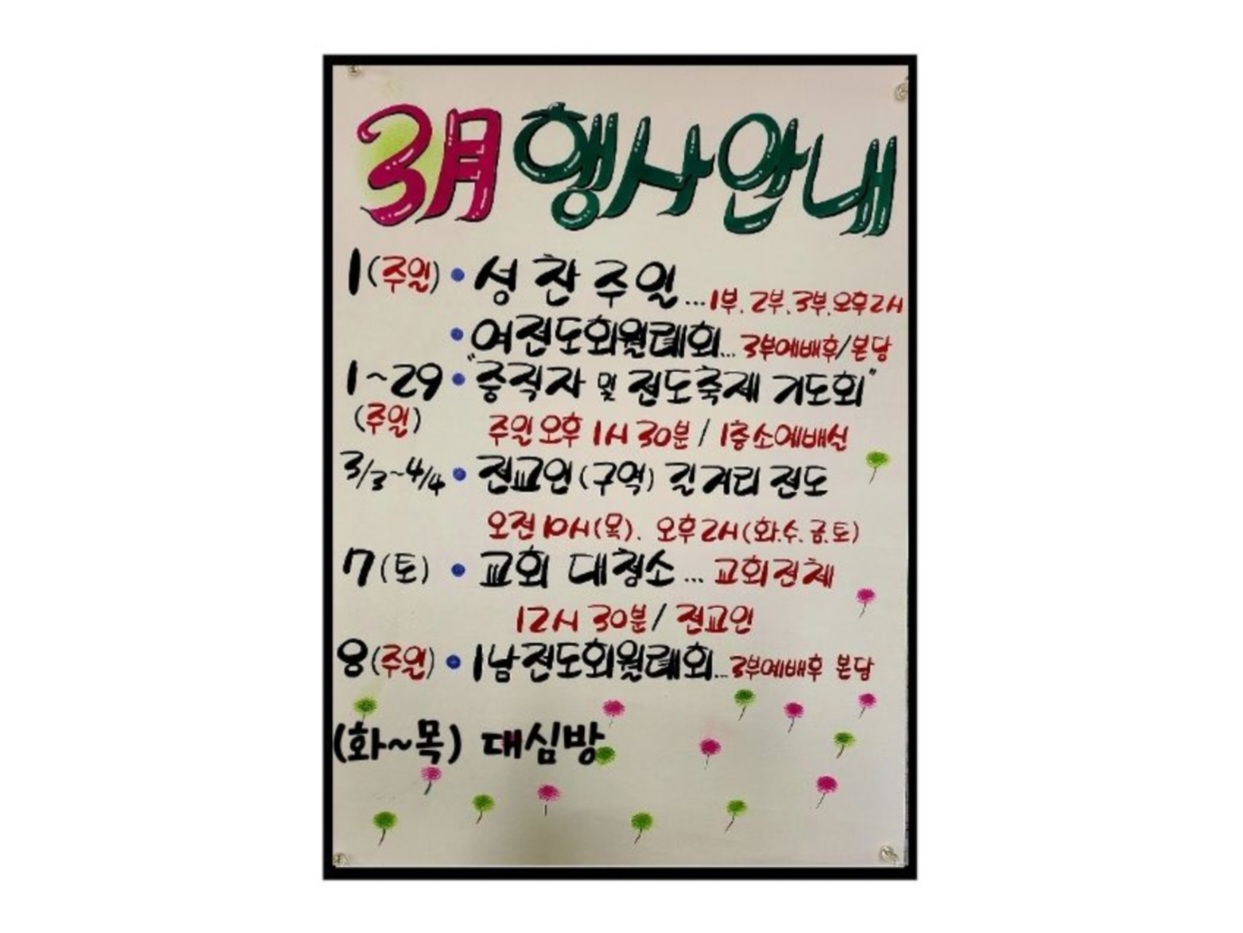 3月 행사안내
1(주일) • 성찬주일... 1부.2부.3부.오후2시
• 여전도회월례회... 3부예배후/본당
1~29 • "중직자 및 전도축제 기도회"
(주일) 주일오후 1시 30분 / 1층소예배실
3/3~4/4 • 전교인(구역) 길거리 전도
오전 10시(목). 오후2시(화.수.금.토)
7(토) • 교회 대청소... 교회전체
12시 30분/ 전교인
8(주일) • 1남전도회월례회... 3부예배후 본당
(화~목) 대심방